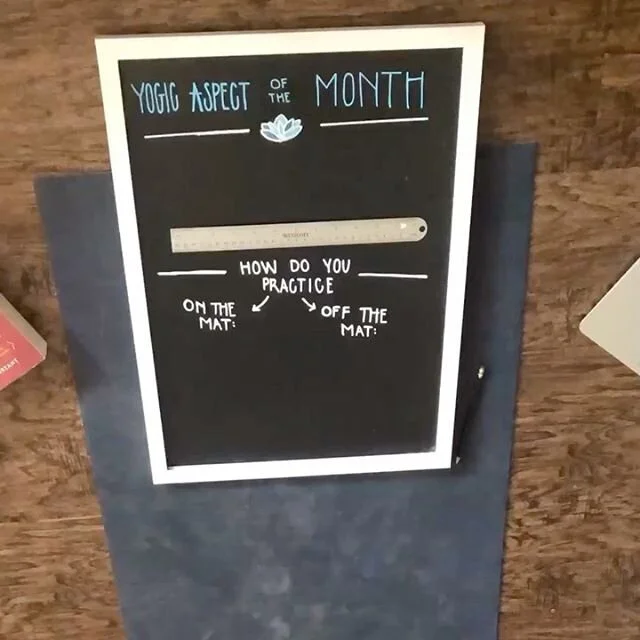 YOGIC ASPECT OF THE MONTH
HOW DO YOU
PRACTICE
ON THE
MAT:
OFF THE
MAT: